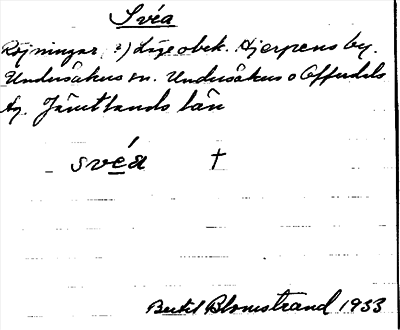 Svéa
Röjningar, ?) Läge obek. Hjerpens by.
Undersåkers sn. Undersåkers o Offerdals
tg. Jämtlands län
svéa †
Bertil Blomstrand 1933